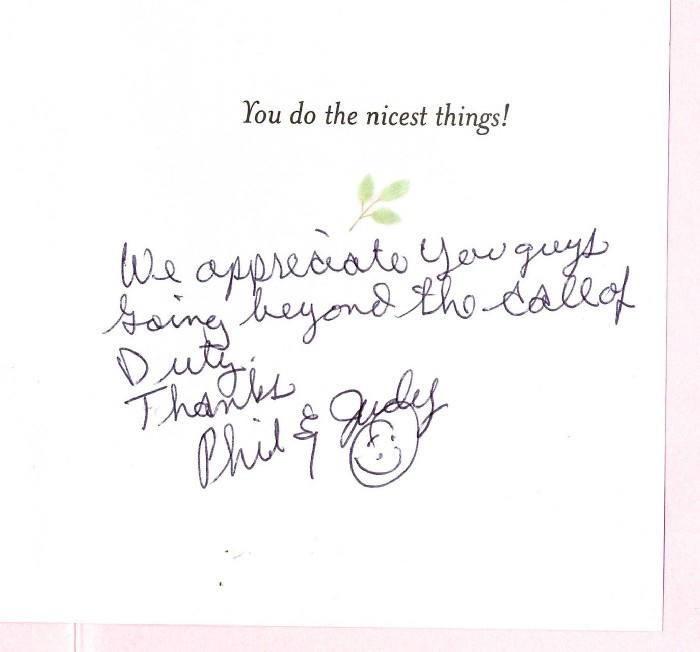 You do the nicest things!
We appreciate you guys
Going beyond the call of
Duty.
Thanks
Phil & Judy